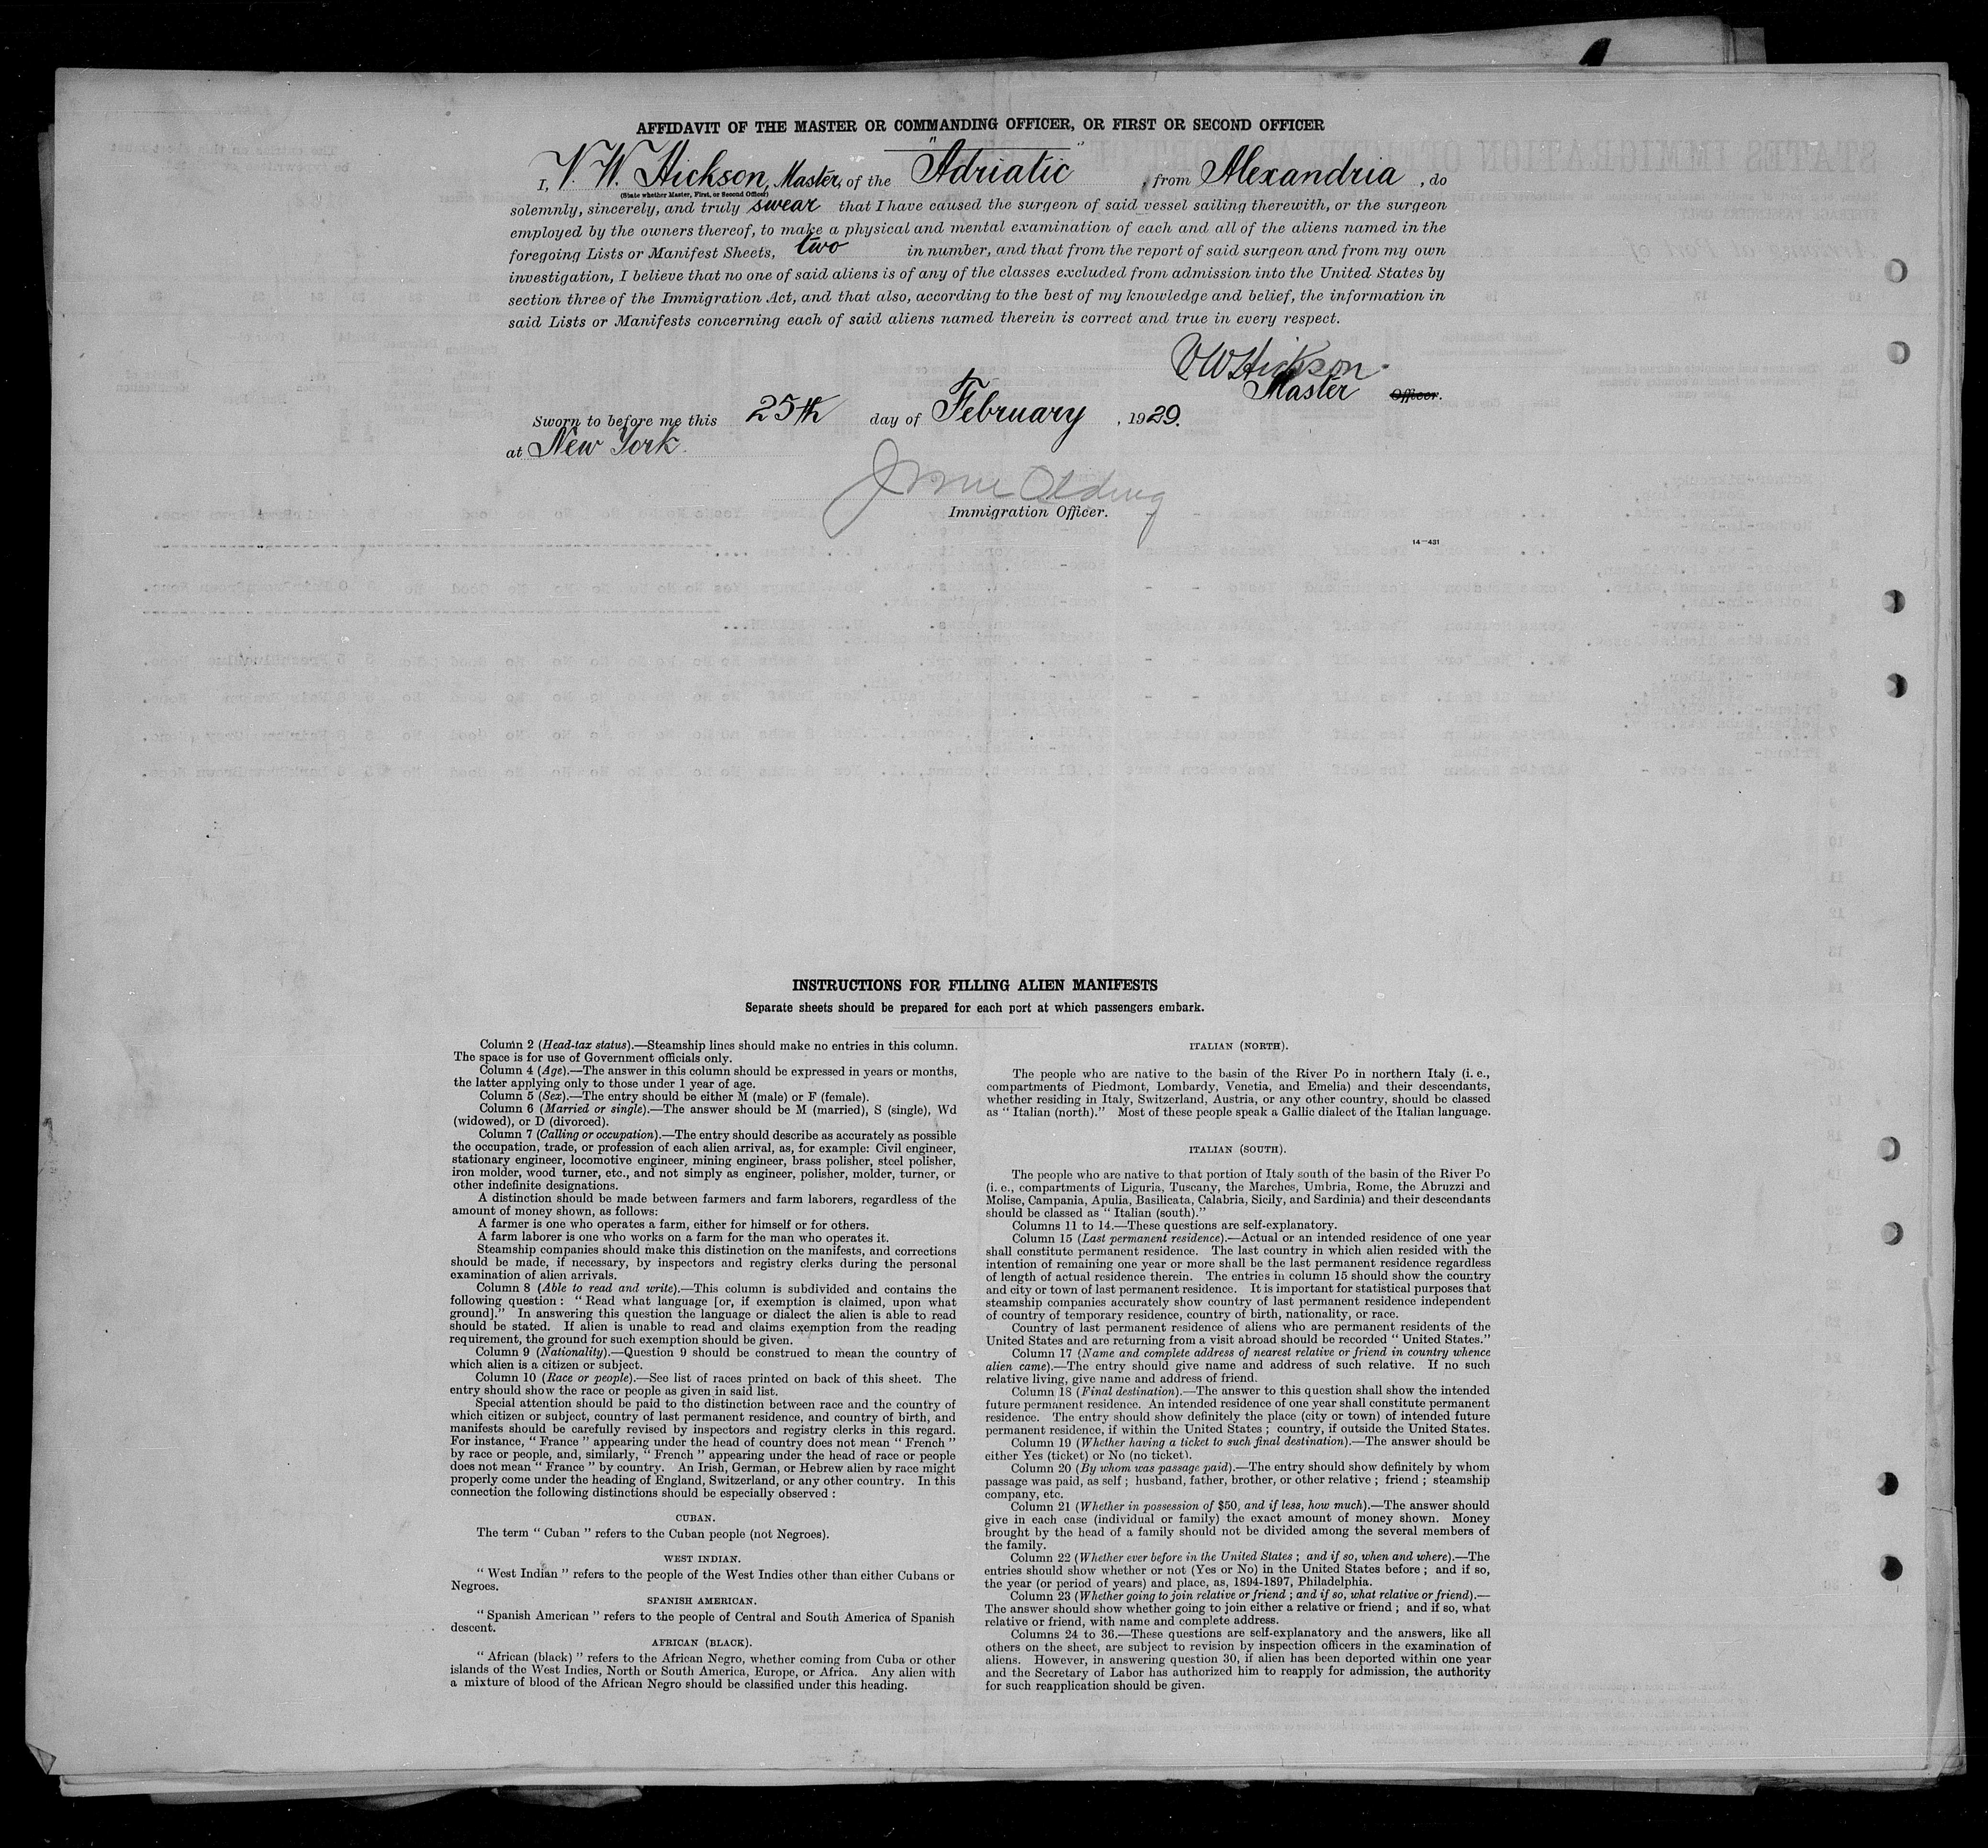 AFFIDAVIT OF THE MASTER OR COMMANDING OFFICER, OR FIRST OR SECOND OFFICER
I, V. W. Hickson, Master, of the "Adriatic", from Alexandria, do
(State whether Master, First, or Second Officer)
solemnly, sincerely, and truly swear that I have caused the surgeon of said vessel sailing therewith, or the surgeon
employed by the owners thereof, to make a physical and mental examination of each and all of the aliens named in the
foregoing Lists or Manifest Sheets, two in number, and that from the report of said surgeon and from my own
investigation, I believe that no one of said aliens is of any of the classes excluded from admission into the United States by
section three of the Immigration Act, and that also, according to the best of my knowledge and belief, the information in
said Lists or Manifests concerning each of said aliens named therein is correct and true in every respect.
V W Hickson
Master Officer.
Sworn to before me this 25th day of February, 1929.
at New York.
Immigration Officer.
14—431
INSTRUCTIONS FOR FILLING ALIEN MANIFESTS
Separate sheets should be prepared for each port at which passengers embark.
Column 2 (Head-tax status).—Steamship lines should make no entries in this column.
The space is for use of Government officials only.
Column 4 (Age).—The answer in this column should be expressed in years or months,
the latter applying only to those under 1 year of age.
Column 5 (Sex).—The entry should be either M (male) or F (female).
Column 6 (Married or single).—The answer should be M (married), S (single), Wd
(widowed), or D (divorced).
Column 7 (Calling or occupation).—The entry should describe as accurately as possible
the occupation, trade, or profession of each alien arrival, as, for example: Civil engineer,
stationary engineer, locomotive engineer, mining engineer, brass polisher, steel polisher,
iron molder, wood turner, etc., and not simply as engineer, polisher, molder, turner, or
other indefinite designations.
A distinction should be made between farmers and farm laborers, regardless of the
amount of money shown, as follows:
A farmer is one who operates a farm, either for himself or for others.
A farm laborer is one who works on a farm for the man who operates it.
Steamship companies should make this distinction on the manifests, and corrections
should be made, if necessary, by inspectors and registry clerks during the personal
examination of alien arrivals.
Column 8 (Able to read and write).—This column is subdivided and contains the
following question: "Read what language [or, if exemption is claimed, upon what
ground]." In answering this question the language or dialect the alien is able to read
should be stated. If alien is unable to read and claims exemption from the reading
requirement, the ground for such exemption should be given.
Column 9 (Nationality).—Question 9 should be construed to mean the country of
which alien is a citizen or subject.
Column 10 (Race or people).—See list of races printed on back of this sheet. The
entry should show the race or people as given in said list.
Special attention should be paid to the distinction between race and the country of
which citizen or subject, country of last permanent residence, and country of birth, and
manifests should be carefully revised by inspectors and registry clerks in this regard.
For instance, "France" appearing under the head of country does not mean "French"
by race or people, and, similarly, "French" appearing under the head of race or people
does not mean "France" by country. An Irish, German, or Hebrew alien by race might
properly come under the heading of England, Switzerland, or any other country. In this
connection the following distinctions should be especially observed:
CUBAN.
The term "Cuban" refers to the Cuban people (not Negroes).
WEST INDIAN.
"West Indian" refers to the people of the West Indies other than either Cubans or
Negroes.
SPANISH AMERICAN.
"Spanish American" refers to the people of Central and South America of Spanish
descent.
AFRICAN (BLACK).
"African (black)" refers to the African Negro, whether coming from Cuba or other
islands of the West Indies, North or South America, Europe, or Africa. Any alien with
a mixture of blood of the African Negro should be classified under this heading.
ITALIAN (NORTH).
The people who are native to the basin of the River Po in northern Italy (i. e.,
compartments of Piedmont, Lombardy, Venetia, and Emelia) and their descendants,
whether residing in Italy, Switzerland, Austria, or any other country, should be classed
as "Italian (north)." Most of these people speak a Gallic dialect of the Italian language.
ITALIAN (SOUTH).
The people who are native to that portion of Italy south of the basin of the River Po
(i. e., compartments of Liguria, Tuscany, the Marches, Umbria, Rome, the Abruzzi and
Molise, Campania, Apulia, Basilicata, Calabria, Sicily, and Sardinia) and their descendants
should be classed as "Italian (south)."
Columns 11 to 14.—These questions are self-explanatory.
Column 15 (Last permanent residence).—Actual or an intended residence of one year
shall constitute permanent residence. The last country in which alien resided with the
intention of remaining one year or more shall be the last permanent residence regardless
of length of actual residence therein. The entries in column 15 should show the country
and city or town of last permanent residence. It is important for statistical purposes that
steamship companies accurately show country of last permanent residence independent
of country of temporary residence, country of birth, nationality, or race.
Country of last permanent residence of aliens who are permanent residents of the
United States and are returning from a visit abroad should be recorded "United States."
Column 17 (Name and complete address of nearest relative or friend in country whence
alien came).—The entry should give name and address of such relative. If no such
relative living, give name and address of friend.
Column 18 (Final destination).—The answer to this question shall show the intended
future permanent residence. An intended residence of one year shall constitute permanent
residence. The entry should show definitely the place (city or town) of intended future
permanent residence, if within the United States; country, if outside the United States.
Column 19 (Whether having a ticket to such final destination).—The answer should be
either Yes (ticket) or No (no ticket).
Column 20 (By whom was passage paid).—The entry should show definitely by whom
passage was paid, as self; husband, father, brother, or other relative; friend; steamship
company, etc.
Column 21 (Whether in possession of $50, and if less, how much).—The answer should
give in each case (individual or family) the exact amount of money shown. Money
brought by the head of a family should not be divided among the several members of
the family.
Column 22 (Whether ever before in the United States; and if so, when and where).—The
entries should show whether or not (Yes or No) in the United States before; and if so,
the year (or period of years) and place, as, 1894-1897, Philadelphia.
Column 23 (Whether going to join relative or friend; and if so, what relative or friend).—
The answer should show whether going to join either a relative or friend; and if so, what
relative or friend, with name and complete address.
Columns 24 to 36.—These questions are self-explanatory and the answers, like all
others on the sheet, are subject to revision by inspection officers in the examination of
aliens. However, in answering question 30, if alien has been deported within one year
and the Secretary of Labor has authorized him to reapply for admission, the authority
for such reapplication should be given.